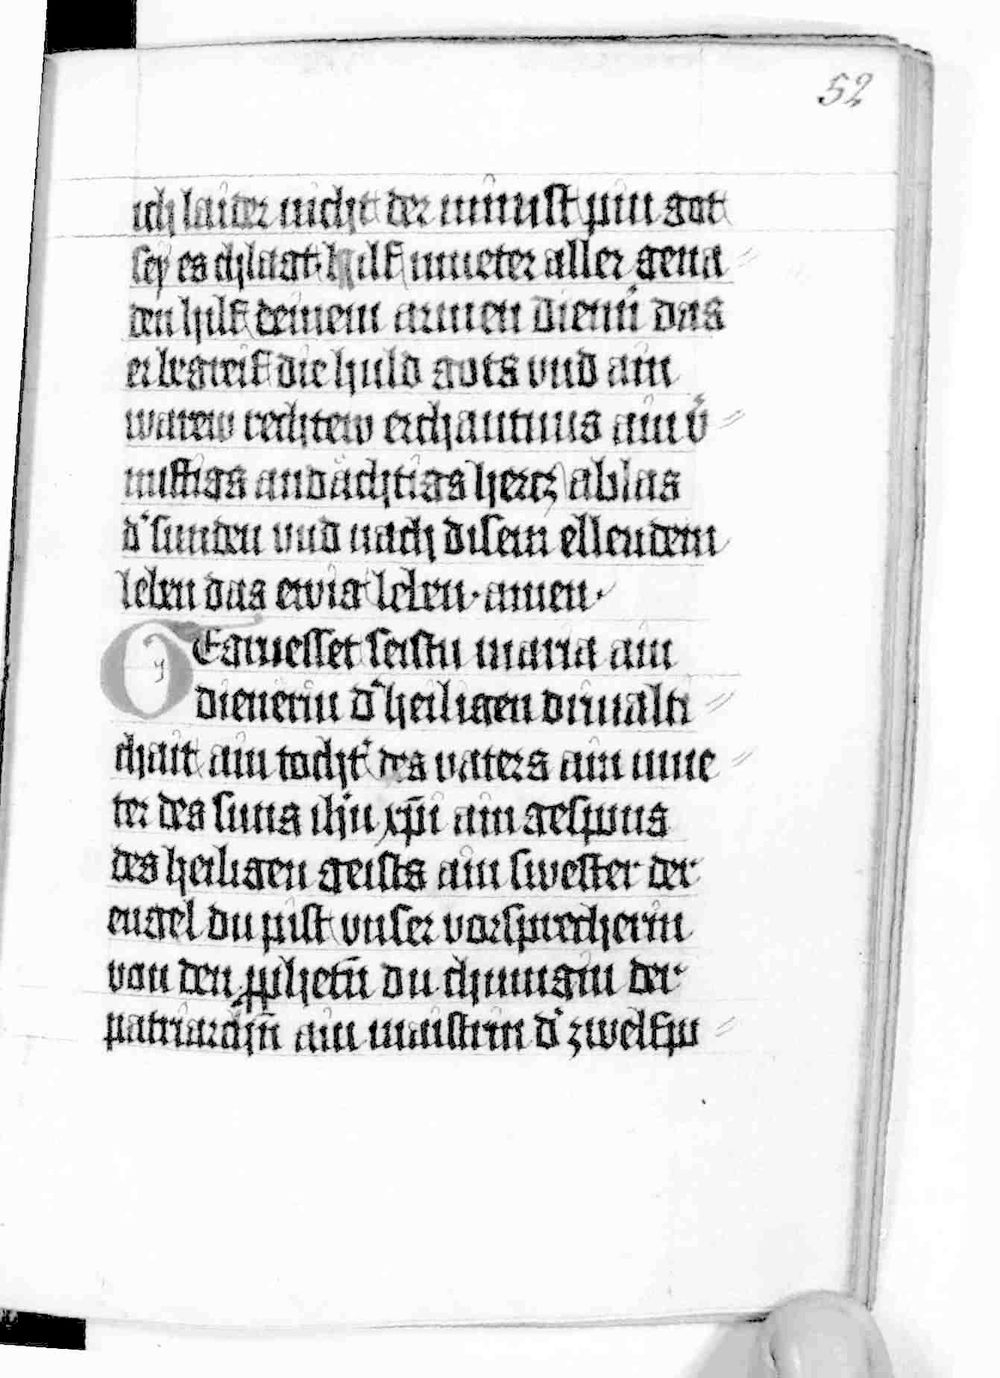 52
ich laider nicht der minnist pin got
sey es chlagt hilf mueter aller gena
den hilf deinem armen dienn̄ das
er begreif die huld gots vnd ain
warew rechtew erchantnus ain v̄
nuftigs andächtigs hercz ablas
d' sunden vnd nach disem ellendem
leben das ewig leben · amen ·
Gegruesset seistu maria ain
dienerin d' heiligen driualti
chait ain tocht' des vaters ain mue
ter des suns ihū xp̄i ain gespuns
des heiligen geists ain swester der
engel du pist vnser vorsprecherin
von den ꝓphetn̄ du chunigin der
patriarchn̄ ain maistrin d' zwelfpo